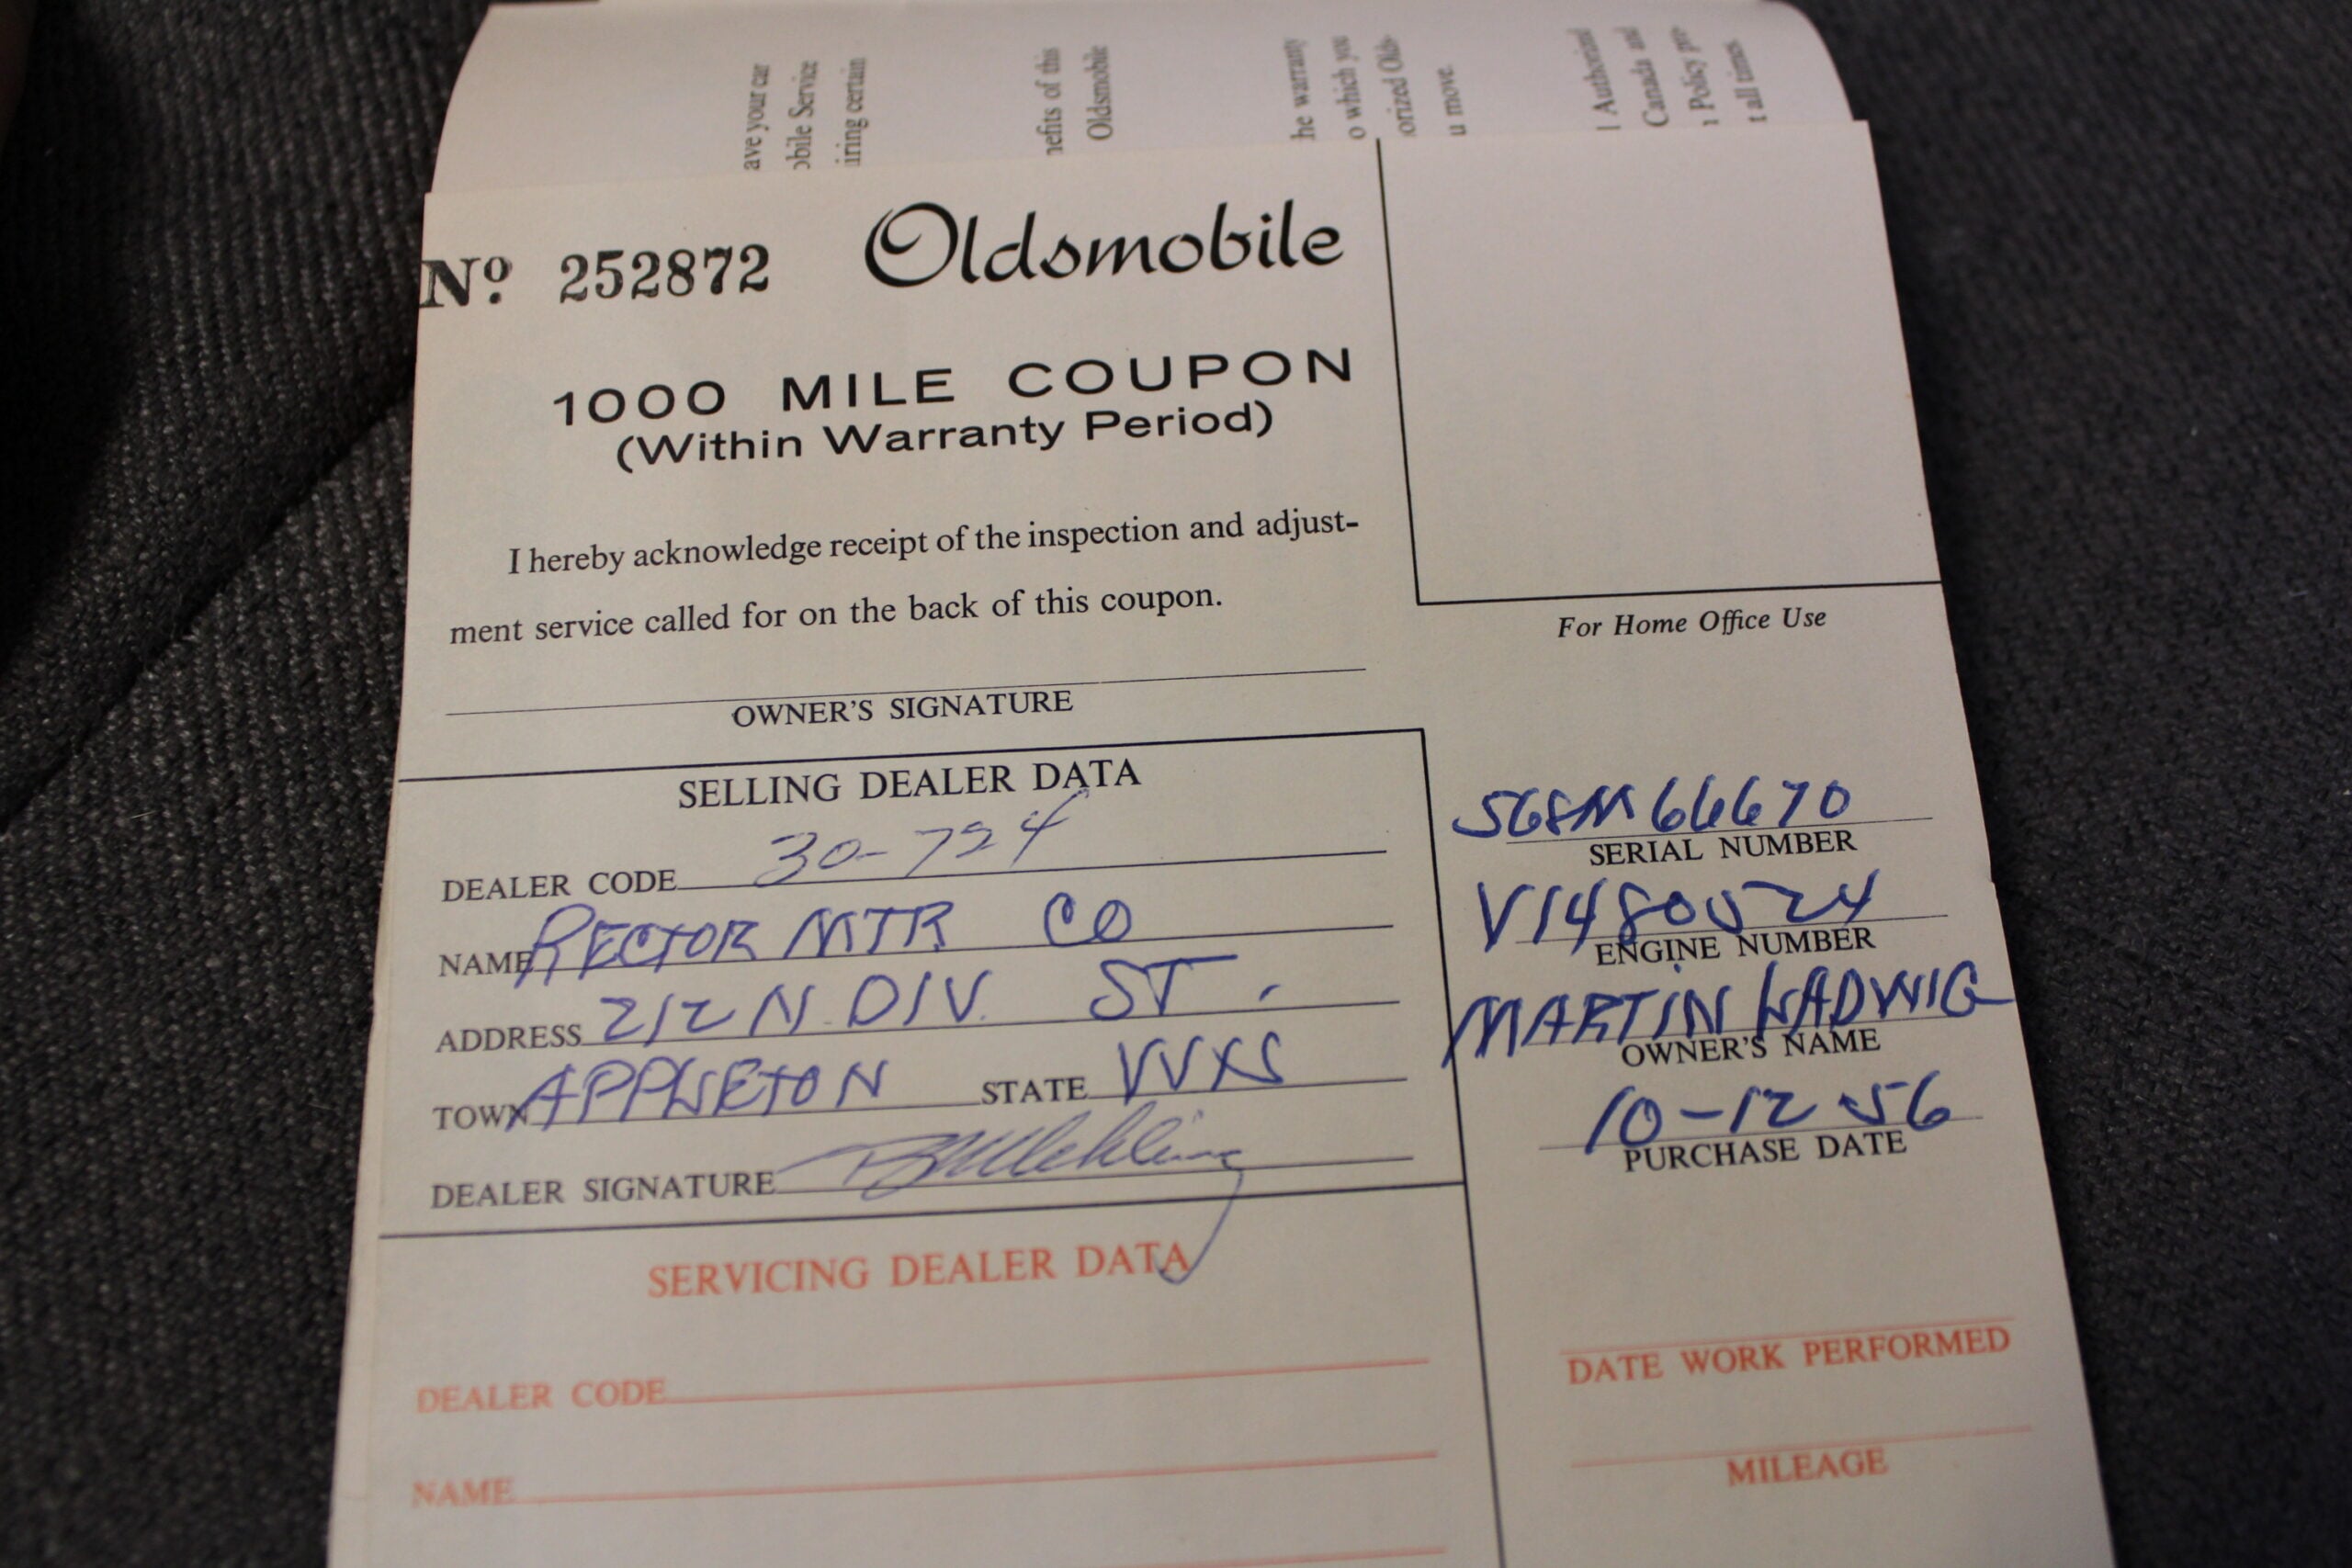 ave your car
obile Service
iring certain
nefits of this
Oldsmobile
he warranty
o which you
orized Olds-
u move.
l Authorized
Canada and
n Policy pro-
t all times
Nº 252872 Oldsmobile
1000 MILE COUPON
(Within Warranty Period)
I hereby acknowledge receipt of the inspection and adjust-
ment service called for on the back of this coupon.
OWNER'S SIGNATURE
For Home Office Use
SELLING DEALER DATA
DEALER CODE 30-724
NAME RECTOR MTR CO
ADDRESS 212 N. DIV. ST.
TOWN APPLETON STATE WIS
DEALER SIGNATURE
568M66670
SERIAL NUMBER
V1480524
ENGINE NUMBER
MARTIN LADWIG
OWNER'S NAME
10-12 56
PURCHASE DATE
SERVICING DEALER DATA
DEALER CODE
NAME
DATE WORK PERFORMED
MILEAGE